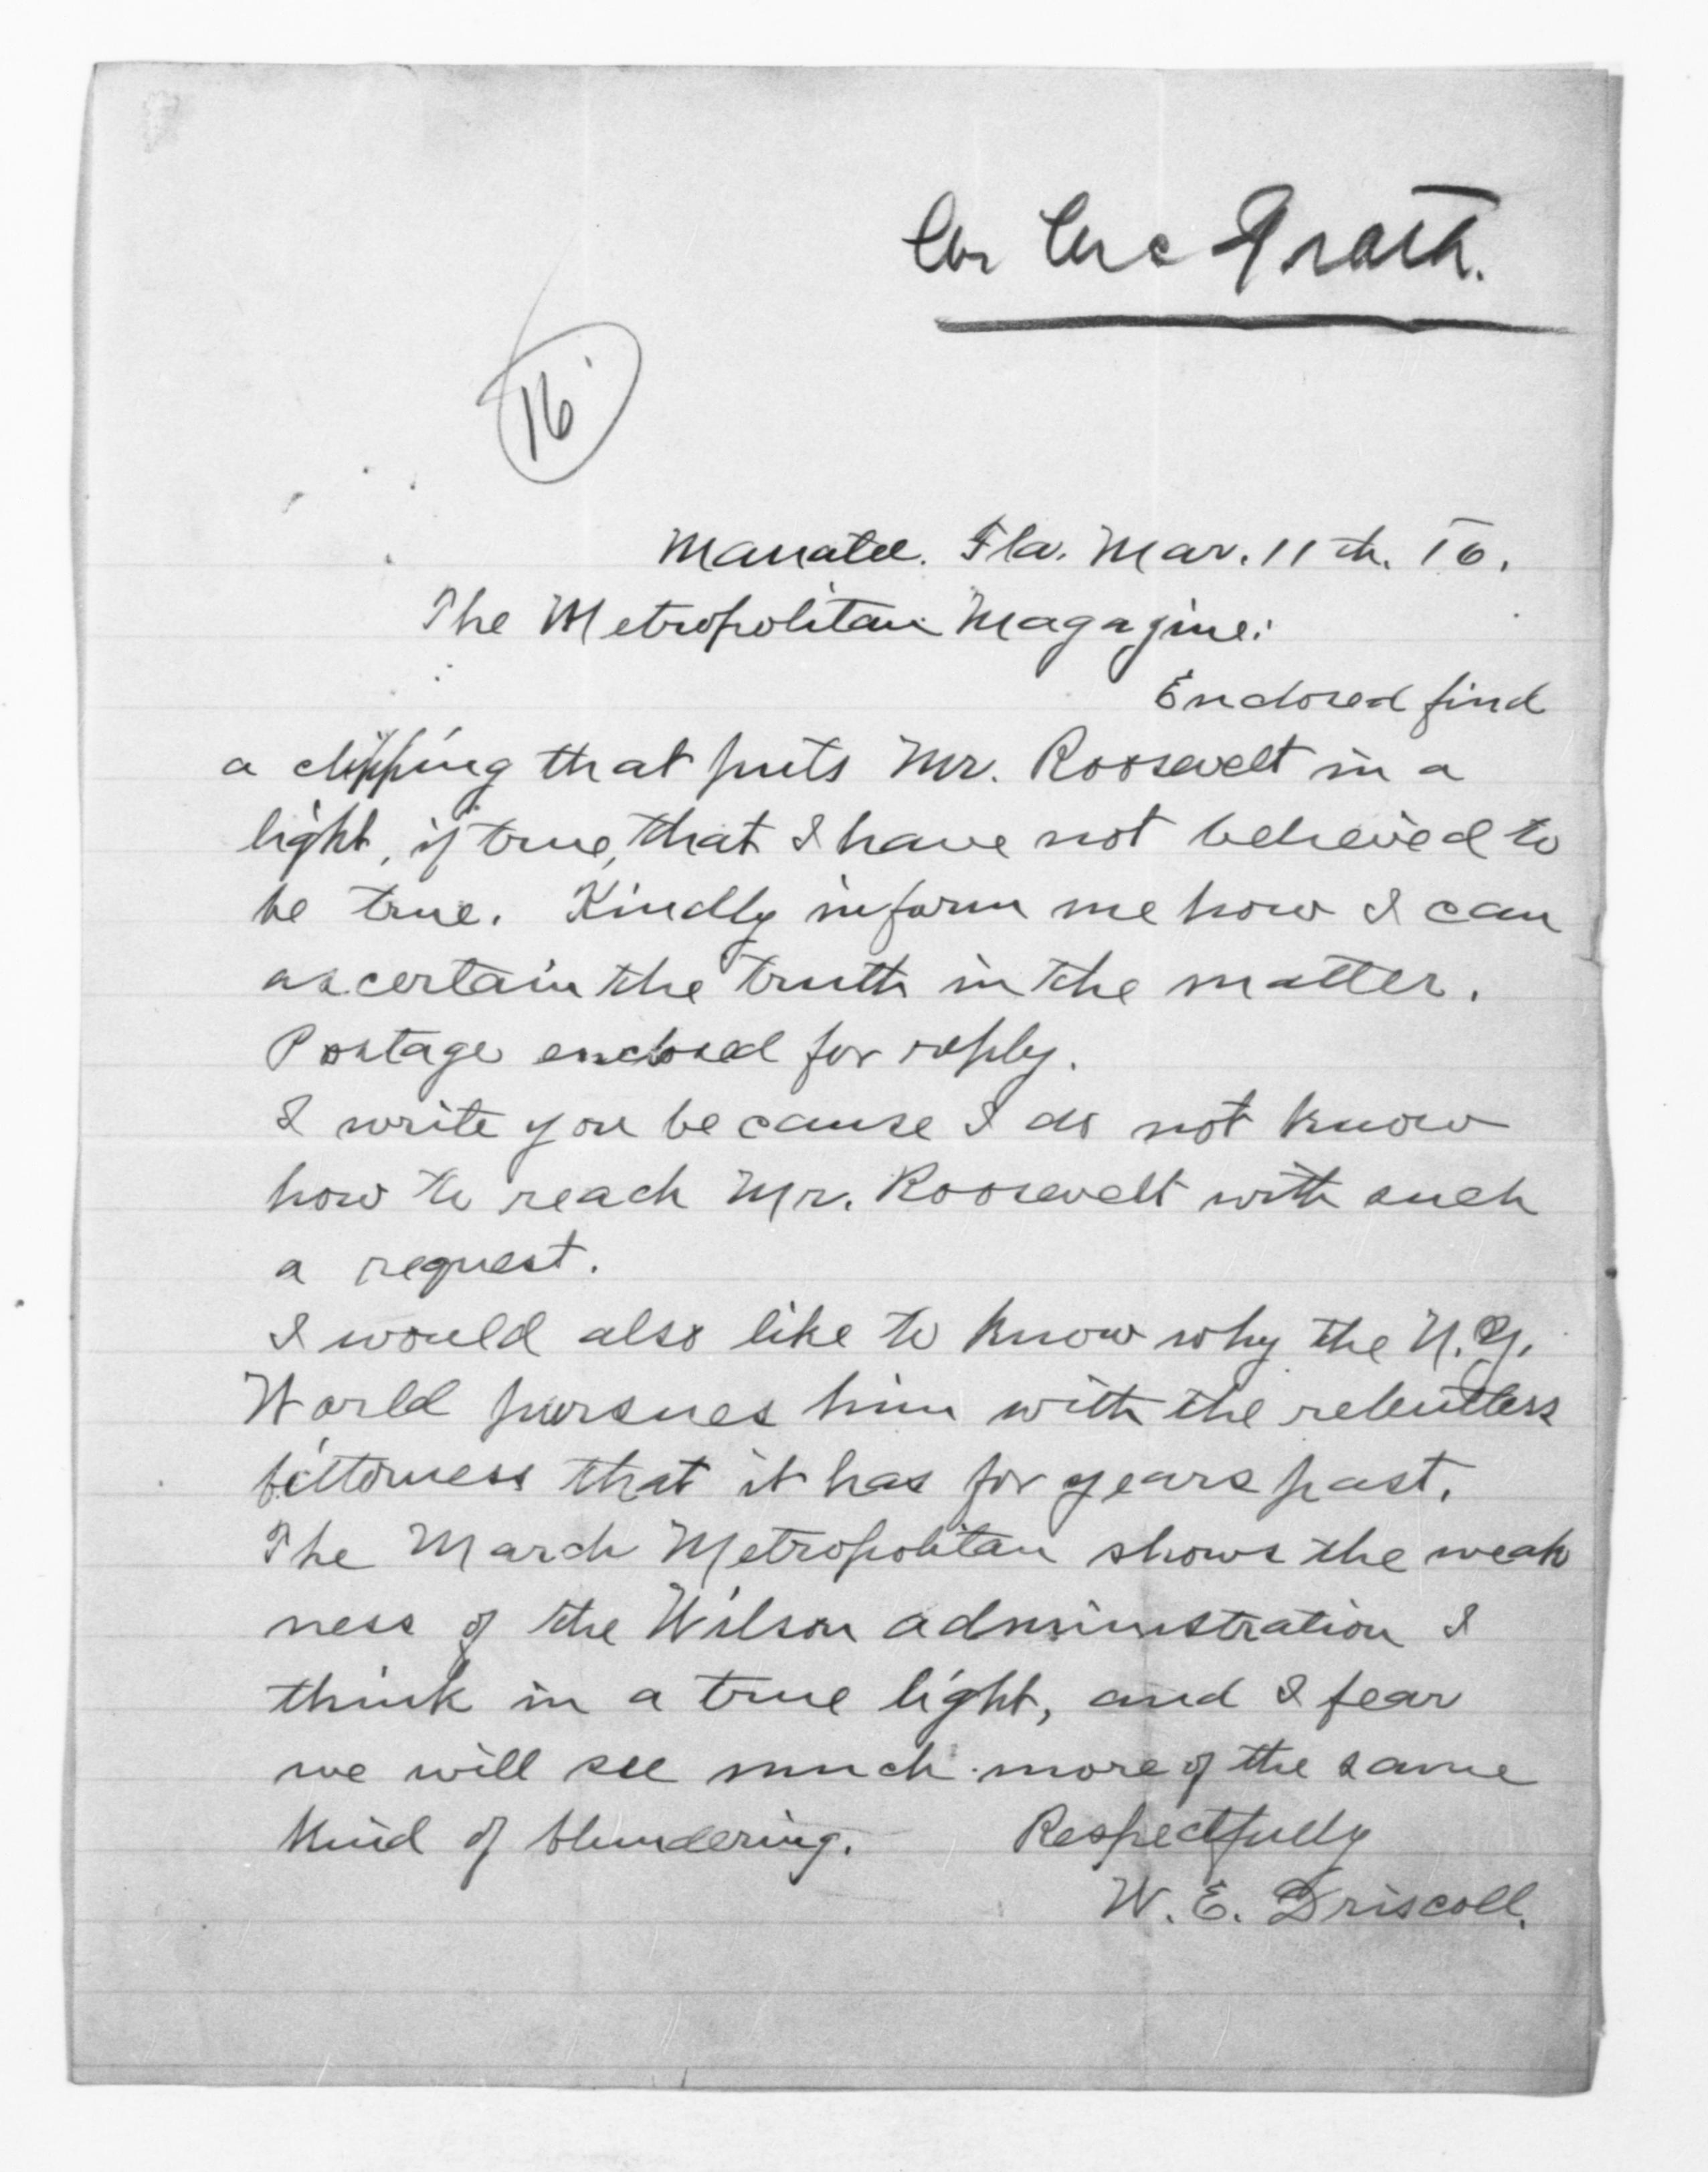 Mc Grath.
16
Manatee. Fla. Mar. 11th. 16.
The Metropolitan Magazine:
Enclosed find
a clipping that puts Mr. Roosevelt in a
light, if true, that I have not believed to
be true. Kindly inform me how I can
ascertain the truth in the matter.
Postage enclosed for reply.
I write you because I do not know
how to reach Mr. Roosevelt with such
a request.
I would also like to know why the N.Y.
World pursues him with the relentless
bitterness that it has for years past.
The March Metropolitan shows the weak
ness of the Wilson administration I
think in a true light, and I fear
we will see much more of the same
kind of blundering. Respectfully
W. E. Driscoll.